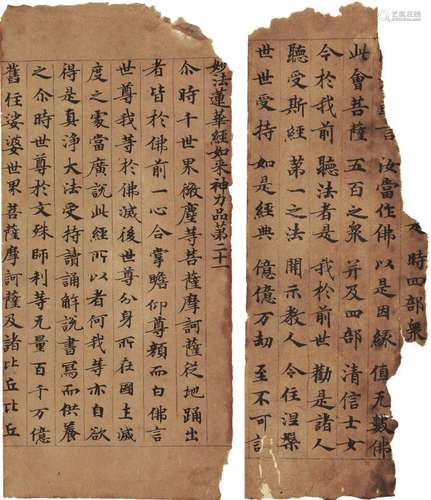 時四部衆
言 汝當作佛 以是因緣 值无數佛
此會菩薩 五百之衆 并及四部 清信士女
今於我前 聽法者是 我於前世 勸是諸人
聽受斯經 第一之法 開示教人 令住涅槃
世世受持 如是經典 億億万劫 至不可議
妙法蓮華經如來神力品第二十一
尒時千世界微塵等菩薩摩訶薩從地踊出
者皆於佛前一心合掌瞻仰尊顔而白佛言
世尊我等於佛滅後世尊分身所在國土滅
度之處當廣說此經所以者何我等亦自欲
得是真淨大法受持讀誦解說書寫而供養
之尒時世尊於文殊師利等无量百千万億
舊住娑婆世界菩薩摩訶薩及諸比丘比丘